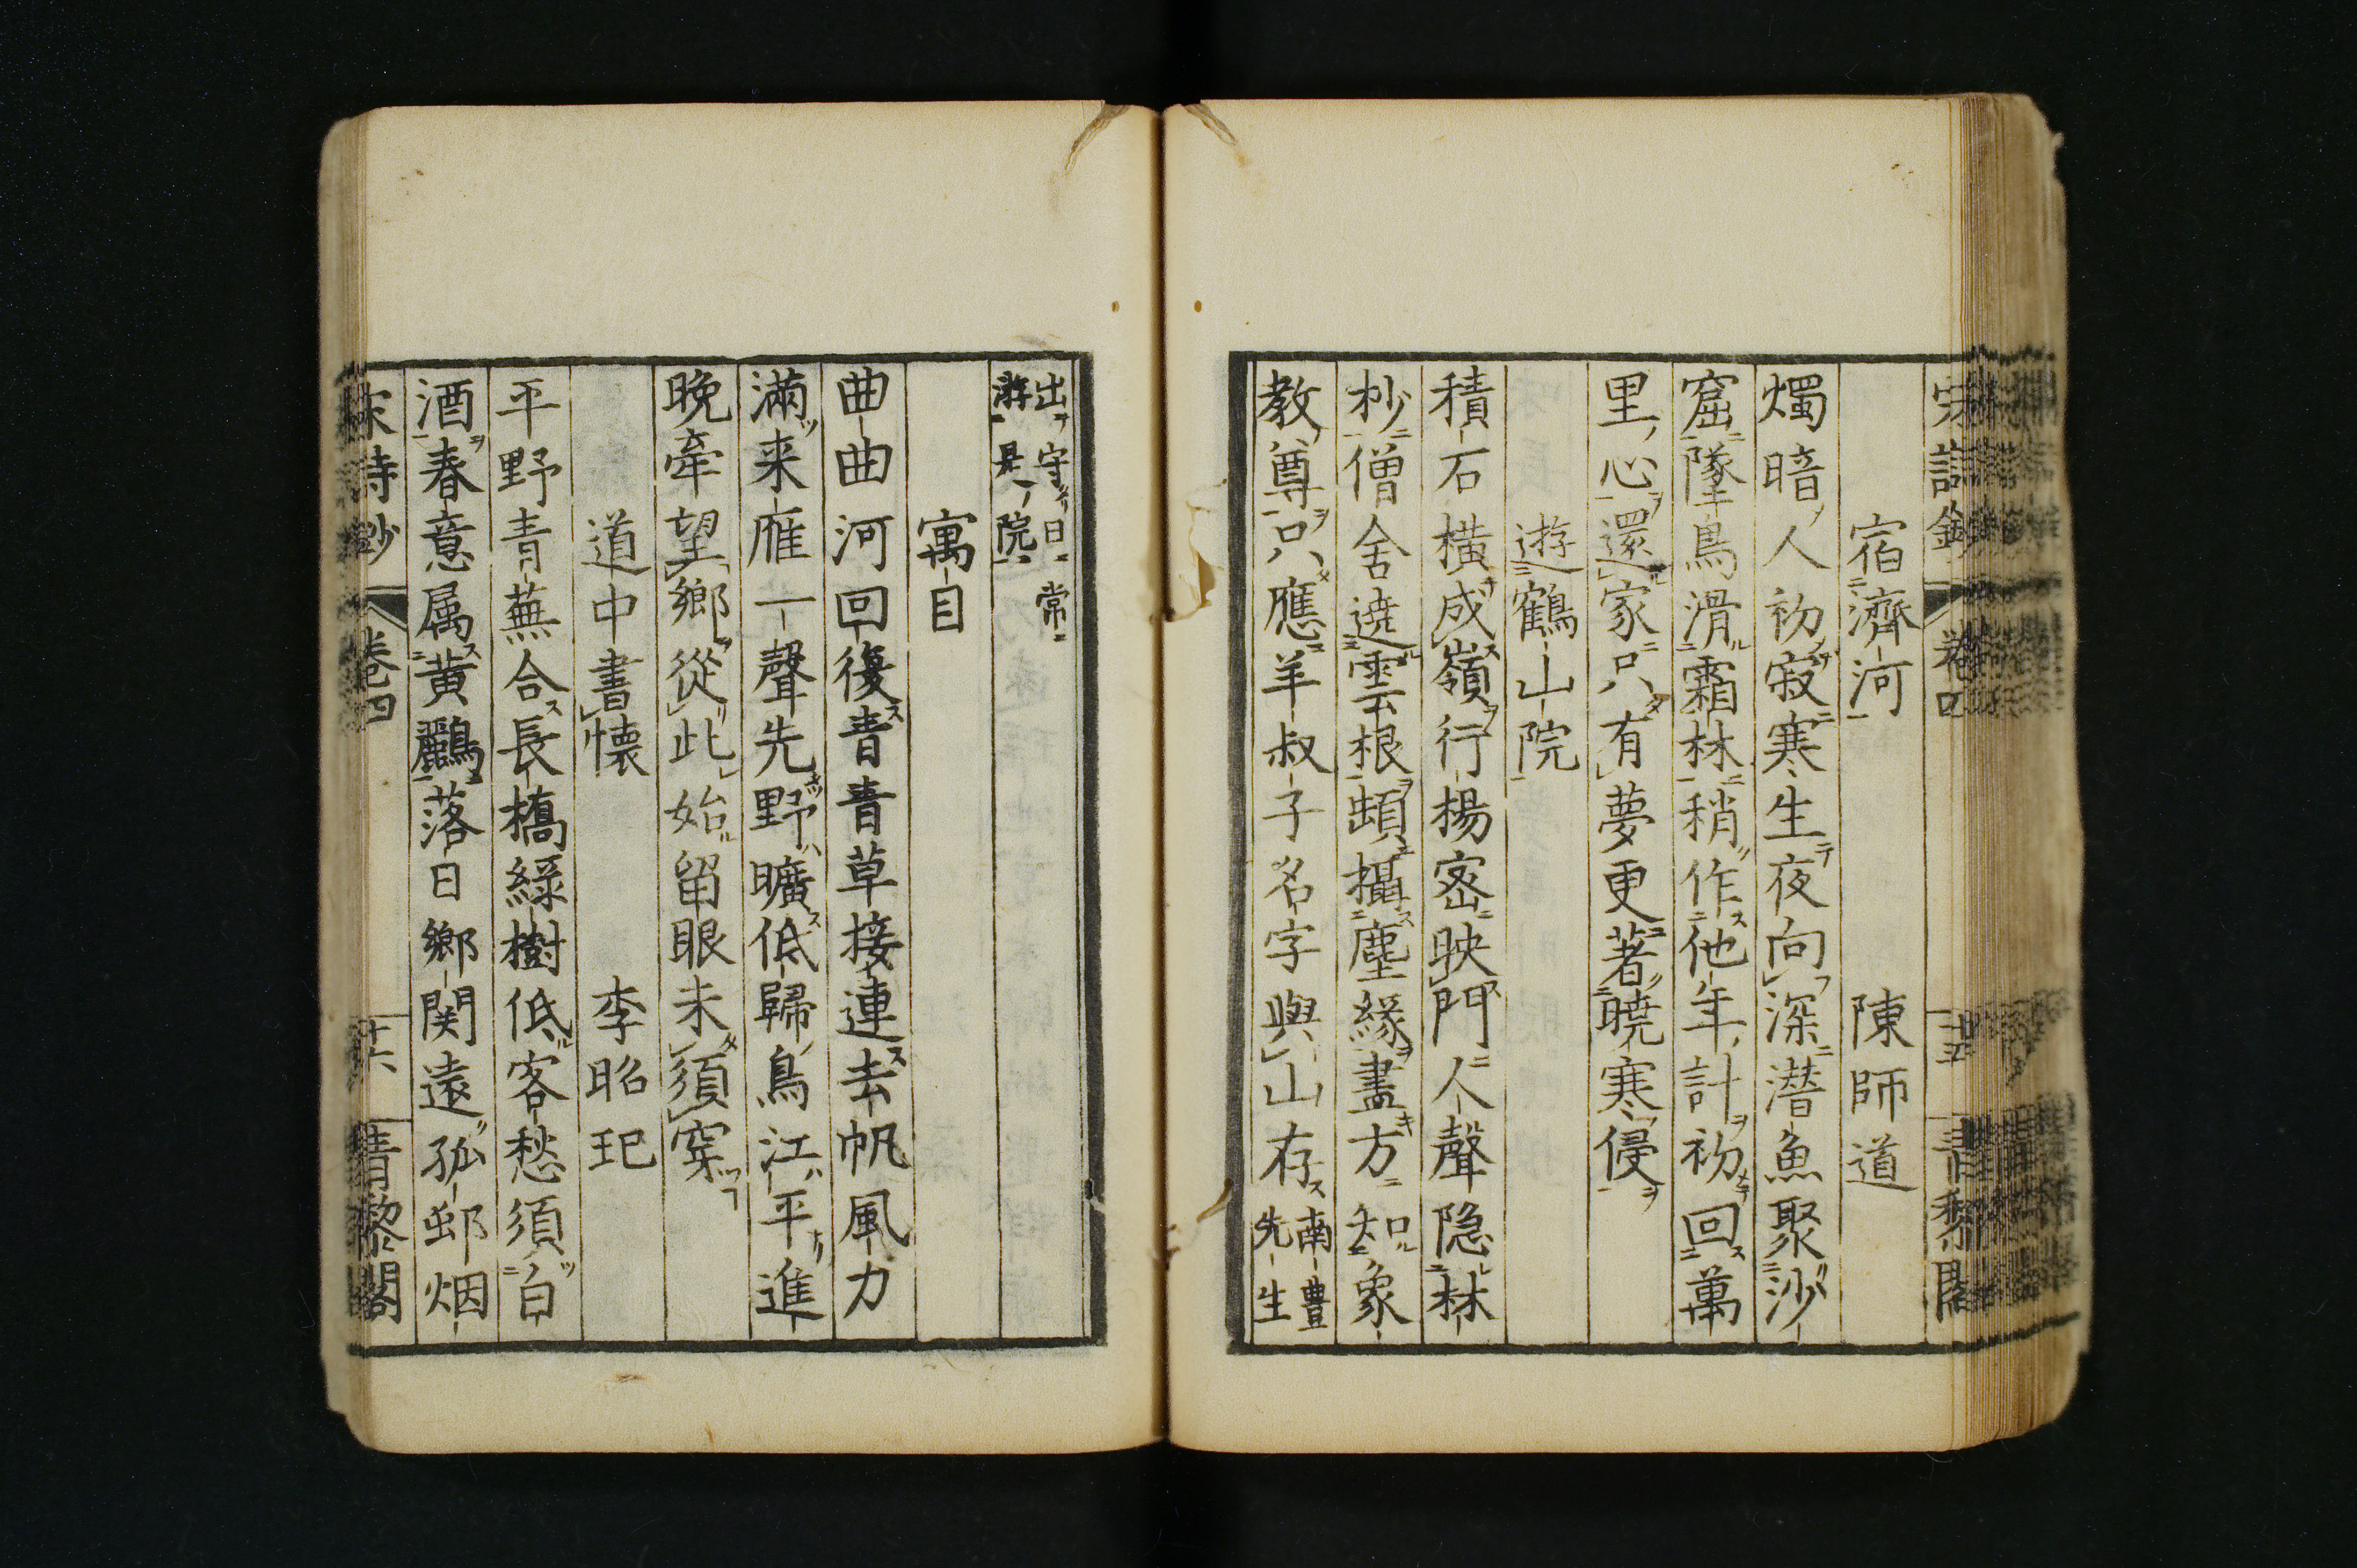 宋詩鈔 卷四 十五 青黎閣
宿濟河 陳師道
燭暗人初寂寒生夜向深潛魚聚沙
窟墜鳥滑霜林稍作他年計初回萬
里心還家只有夢更著曉寒侵
遊鶴山院
積石橫成嶺行楊密映門人聲隐林
杪僧舍遶雲根頔攝塵緣盡方知象
教尊只應羊叔子名字與山存南豊先生
出守日常
游是院
寓目
曲曲河回復青青草接連去帆風力
滿来雁一聲先野曠低歸鳥江平進
晚牽望鄉從此始留眼未須穿
道中書懐 李昭玘
平野青蕪合長橋綠樹低客愁須白
酒春意属黃鸝落日鄉関遠孤邨烟
宋詩鈔 卷四 十六 青黎閣